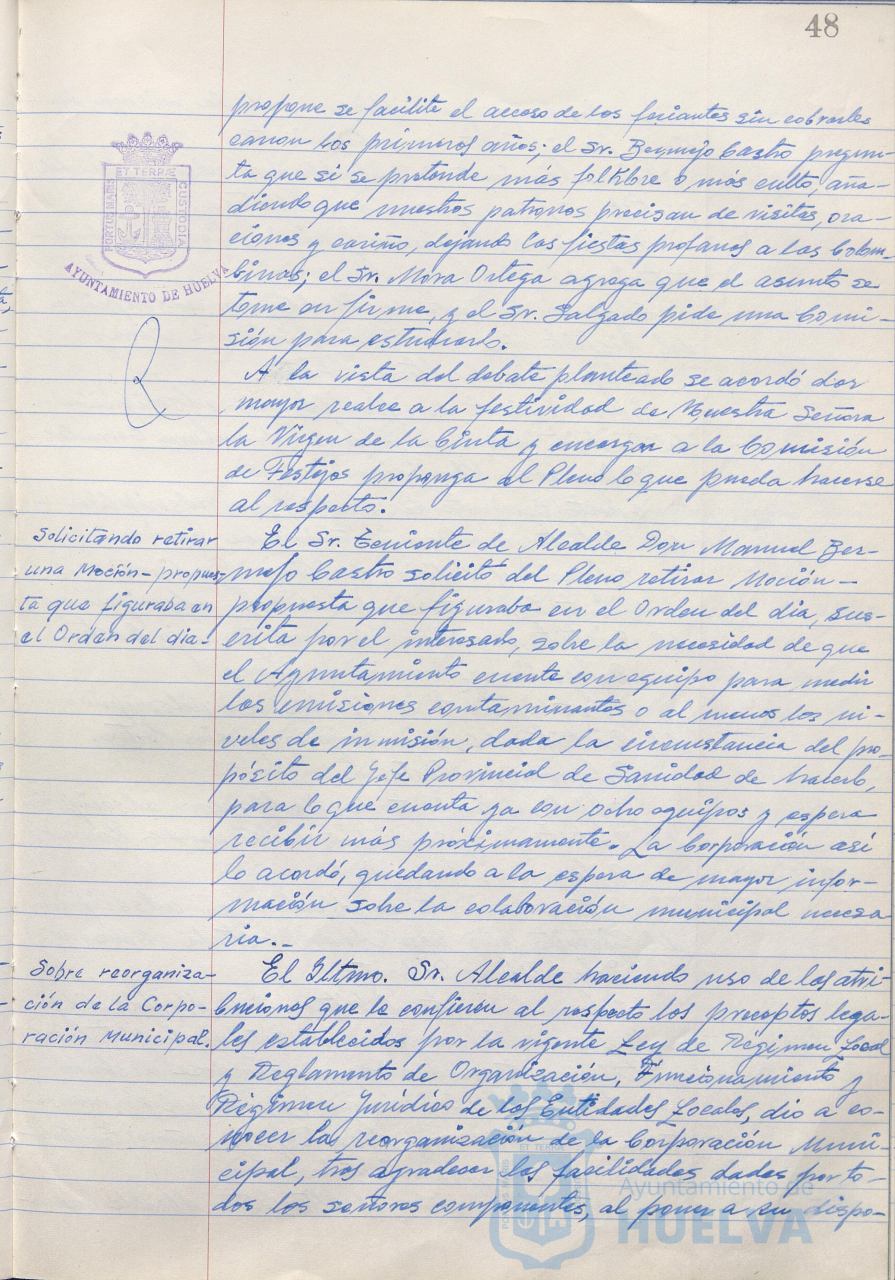 48
propone se facilite el acceso de los feriantes sin cobrarles
canon los primeros años; el Sr. Bermejo Castro pregun-
ta que si se pretende más folklore o más culto, aña-
diendo que nuestros patronos precisan de visitas, ora-
ciones y cariño, dejando las fiestas profanas a las Colom-
binas; el Sr. Mora Ortega agrega que el asunto se
tome en firme, y el Sr. Salgado pide una Comi-
sión para estudiarlo.
ET TERRÆ
PORTUS MARIS
CUSTODIA
AYUNTAMIENTO DE HUELVA
A la vista del debate planteado se acordó dar
mayor realce a la festividad de Nuestra Señora
la Virgen de la Cinta y encargar a la Comisión
de Festejos proponga al Pleno lo que pueda hacerse
al respecto.
Solicitando retirar
una Moción-propues-
ta que figuraba en
el Orden del día.
El Sr. Teniente de Alcalde Don Manuel Ber-
mejo Castro solicitó del Pleno retirar Moción-
propuesta que figuraba en el Orden del día, sus-
crita por el interesado, sobre la necesidad de que
el Ayuntamiento cuente con equipo para medir
las emisiones contaminantes o al menos los ni-
veles de inmisión, dada la circunstancia del pro-
pósito del Jefe Provincial de Sanidad de hacerlo,
para lo que cuenta ya con ocho equipos y espera
recibir más próximamente. La Corporación así
lo acordó, quedando a la espera de mayor infor-
mación sobre la colaboración municipal necesa
ria.-
Sobre reorganiza-
ción de la Corpo-
ración Municipal.
El Iltmo. Sr. Alcalde haciendo uso de las atri-
buciones que le confieren al respecto los preceptos lega-
les establecidos por la vigente Ley de Régimen Local
y Reglamento de Organización, Funcionamiento y
Régimen Jurídico de las Entidades Locales, dio a co-
nocer la reorganización de la Corporación Muni-
cipal, tras agradecer las facilidades dadas por to-
dos los señores componentes, al poner a su dispo-
Ayuntamiento de
HUELVA